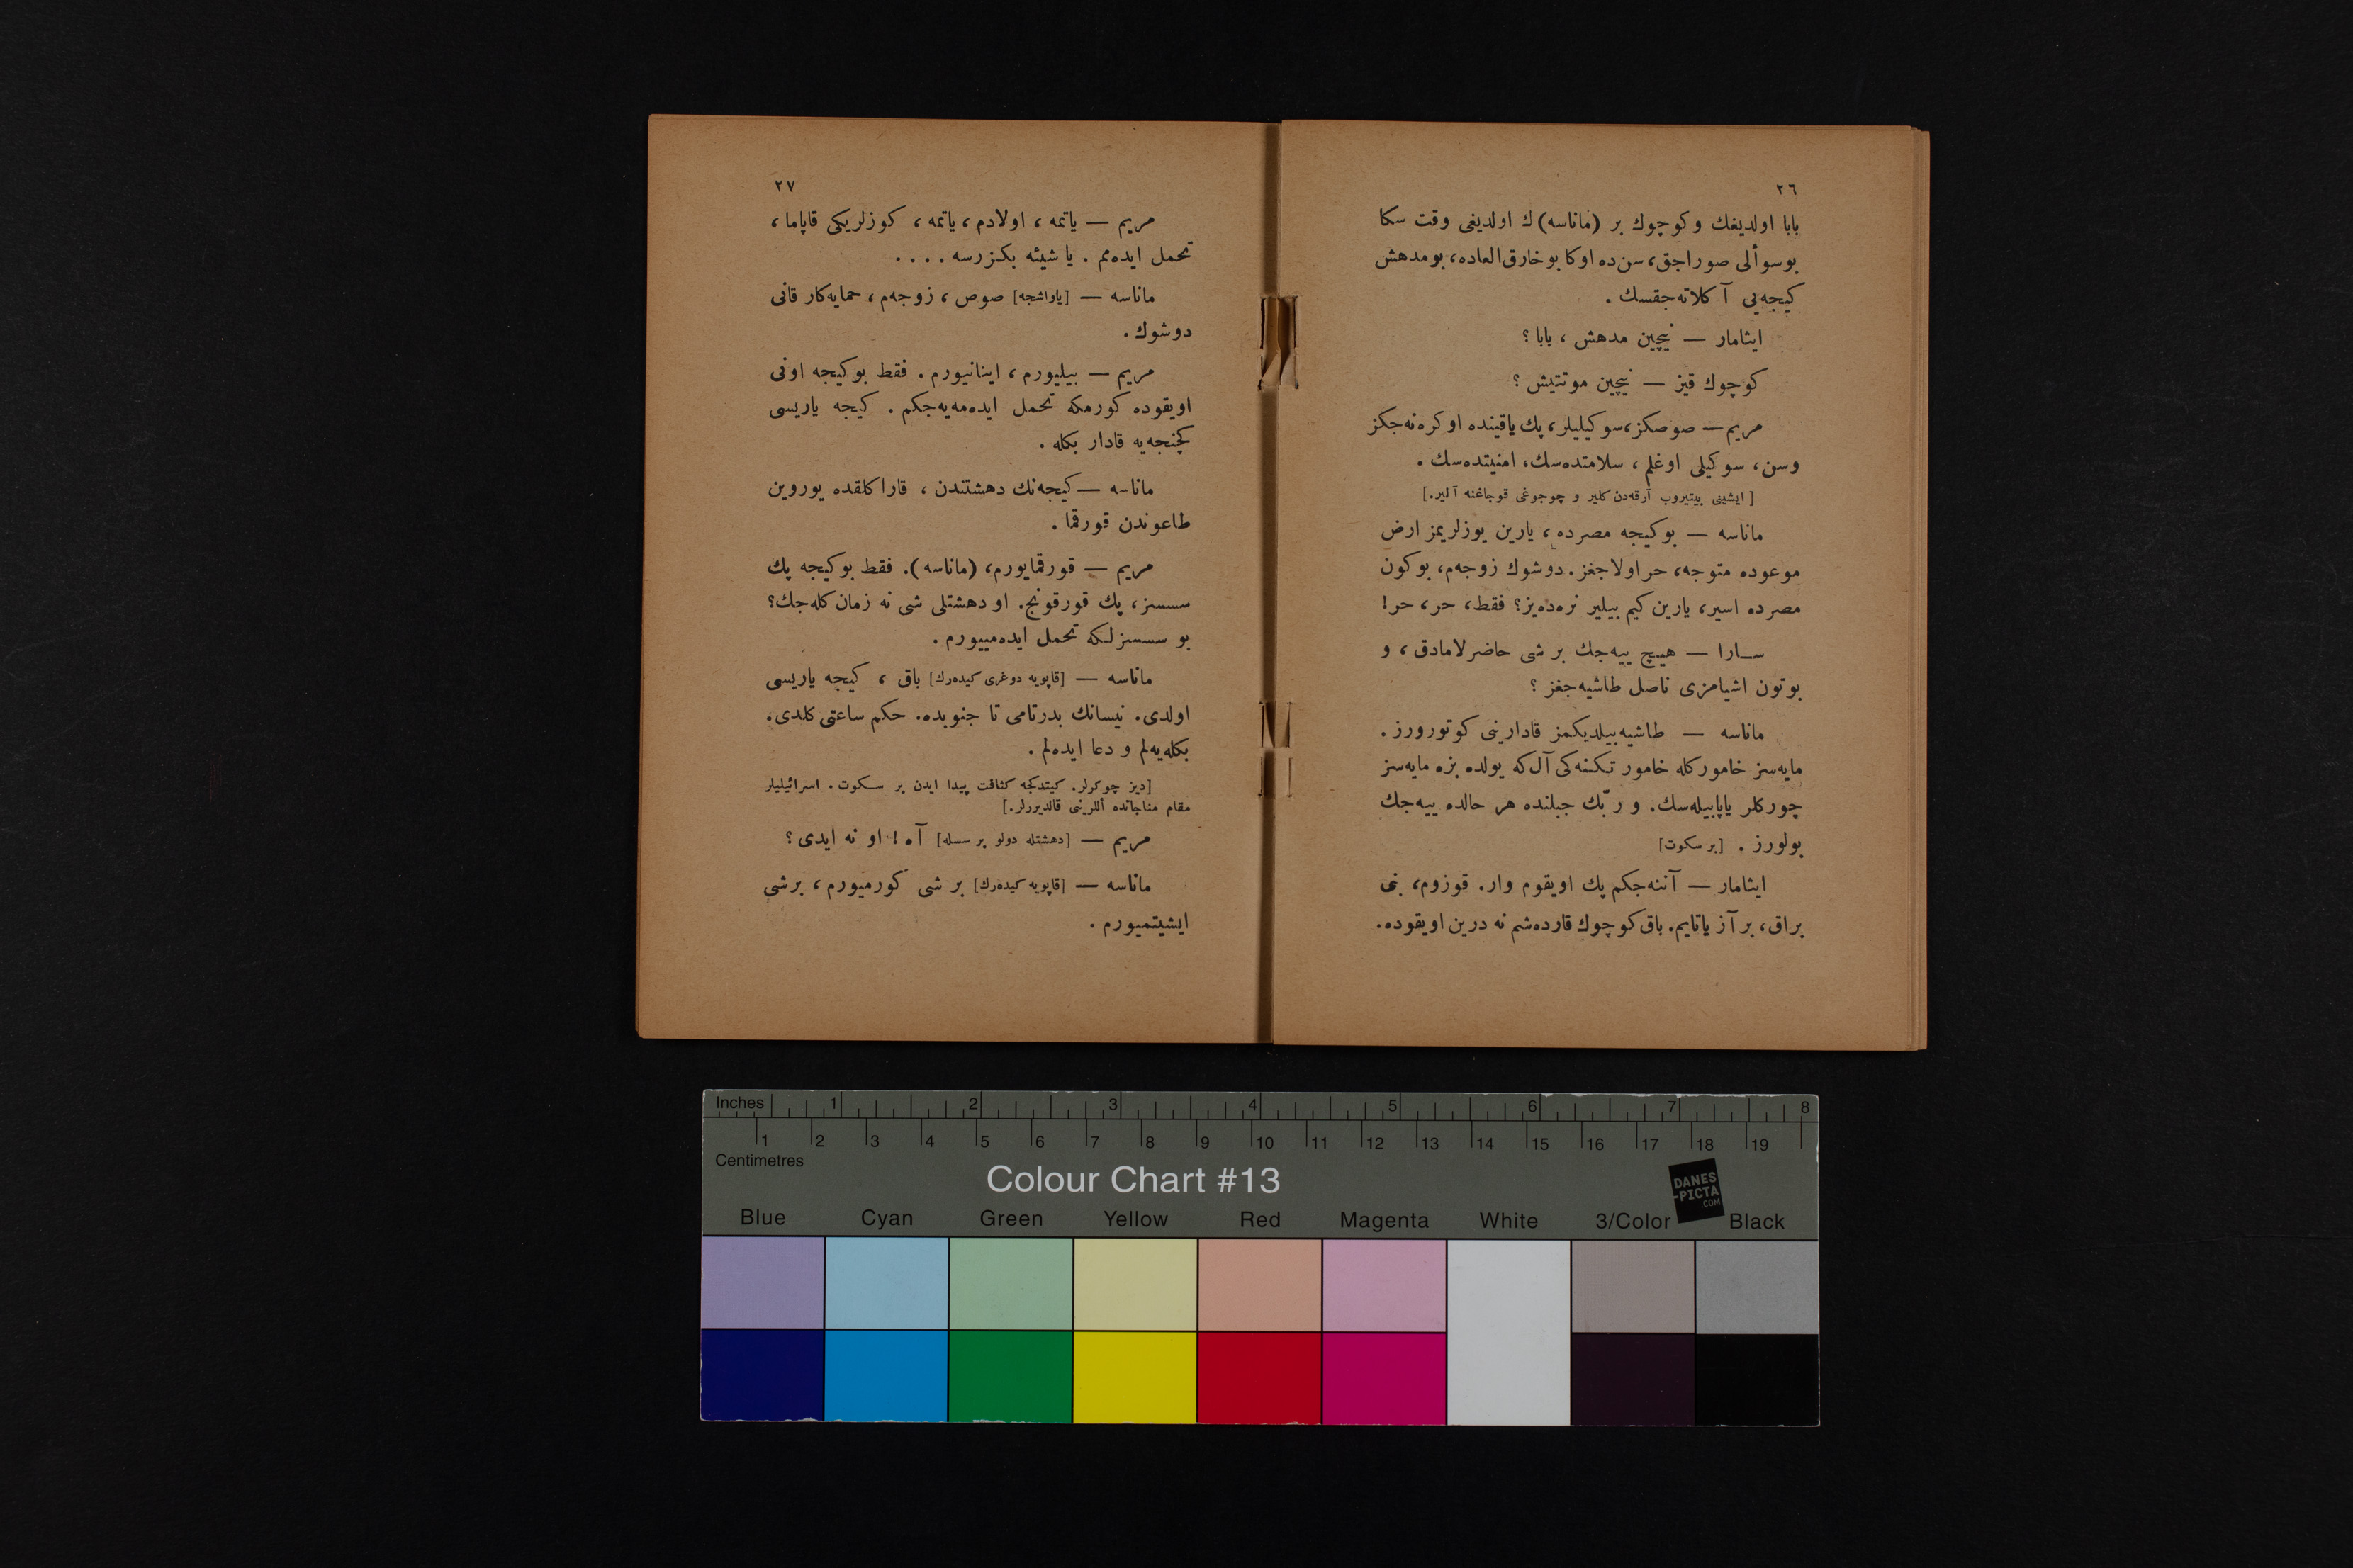 ٢٦
بابا اولديغك وكوچوك بر (ماناسه)ك اولديغى وقت سكا
بوسوألى صوراجق، سن‌ده اوكا بو خارق‌العاده، بومدهش
كيجه‌يى آكلاته‌جقسك .
ايثامار — نيچين مدهش ، بابا ؟
كوچوك قيز — نيچين موتتيش ؟
مريم — صوصكز، سوكيليلر، پك ياقينده اوكره‌نه‌جكز
وسن، سوكيلى اوغلم ، سلامتده‌سك، امنيتده‌سك .
[ ايشينى بيتيروب آرقه‌دن كلير و چوجوغى قوجاغنه آلير.]
ماناسه — بوكيجه مصرده ، يارين يوزلريمز ارض
موعوده متوجه، حر اولاجغز . دوشوك زوجه‌م، بوكون
مصرده اسير، يارين كيم بيلير نره‌ده‌يز؟ فقط، حر، حر!
سارا — هيچ ييه‌جك بر شى حاضرلامادق ، و
بوتون اشيامزى ناصل طاشيه‌جغز ؟
ماناسه — طاشيه‌بيلديكمز قادارينى كوتورورز .
مايه‌سز خاموركله خامور تكنه‌كى آل‌كه يولده بزه مايه‌سز
چوركلر ياپابيله‌سك. و ربّك جبلنده هر حالده ييه‌جك
بولورز . [بر سكوت]
ايثامار — آننه‌جكم پك اويقوم وار. قوزوم، بنى
براق، بر آز ياتايم. باق كوچوك قارده‌شم نه درين اويقوده.
٢٧
مريم — ياتمه ، اولادم ، ياتمه ، كوزلريكى قاپاما ،
تحمل ايده‌مم . يا شيئه بكزرسه . . . .
ماناسه — [ياواشجه] صوص ، زوجه‌م ، حمايه‌كار قانى
دوشوك .
مريم — بيليورم ، اينانيورم . فقط بوكيجه اونى
اويقوده كورمكه تحمل ايده‌مه‌يه‌جكم . كيجه ياريسى
كچنجه‌يه قادار بكله .
ماناسه — كيجه‌نك دهشتندن ، قاراكلقده يوروين
طاعوندن قورقما .
مريم — قورقمايورم، (ماناسه). فقط بوكيجه پك
سسسز، پك قورقونج. او دهشتلى شى نه زمان كله‌جك؟
بو سسسزلكه تحمل ايده‌مييورم .
ماناسه — [قاپويه دوغرى كيده‌رك] باق ، كيجه ياريسى
اولدى. نيسانك بدرتامى تا جنوبده. حكم ساعتى كلدى.
بكله‌يه‌لم و دعا ايده‌لم .
[ديز چوكرلر. كيتدكجه كثافت پيدا ايدن بر سكوت. اسرائيليلر
مقام مناجاتده أللرينى قالديررلر.]
مريم — [دهشتله دولو بر سسله] آه ! او نه ايدى ؟
ماناسه — [قاپويه كيده‌رك] بر شى كورميورم ، برشى
ايشيتميورم .
Inches 1 2 3 4 5 6 7 8
1 2 3 4 5 6 7 8 9 10 11 12 13 14 15 16 17 18 19
Centimetres
Colour Chart #13
DANES
-PICTA
.COM
Blue Cyan Green Yellow Red Magenta White 3/Color Black